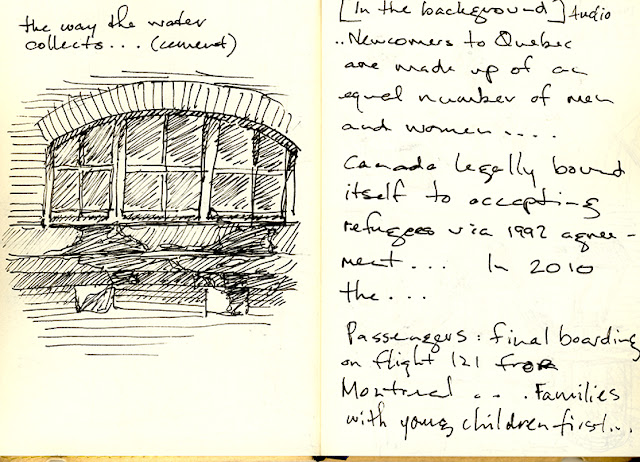 the way the water
collects... (cement)
[In the background] Audio
..Newcomers to Quebec
are made up of an
equal number of men
and women....
Canada legally bound
itself to accepting
refugees via 1992 agree-
ment... In 2010
the...
Passengers: final boarding
on flight 121 from
Montreal ... Families
with young children first...